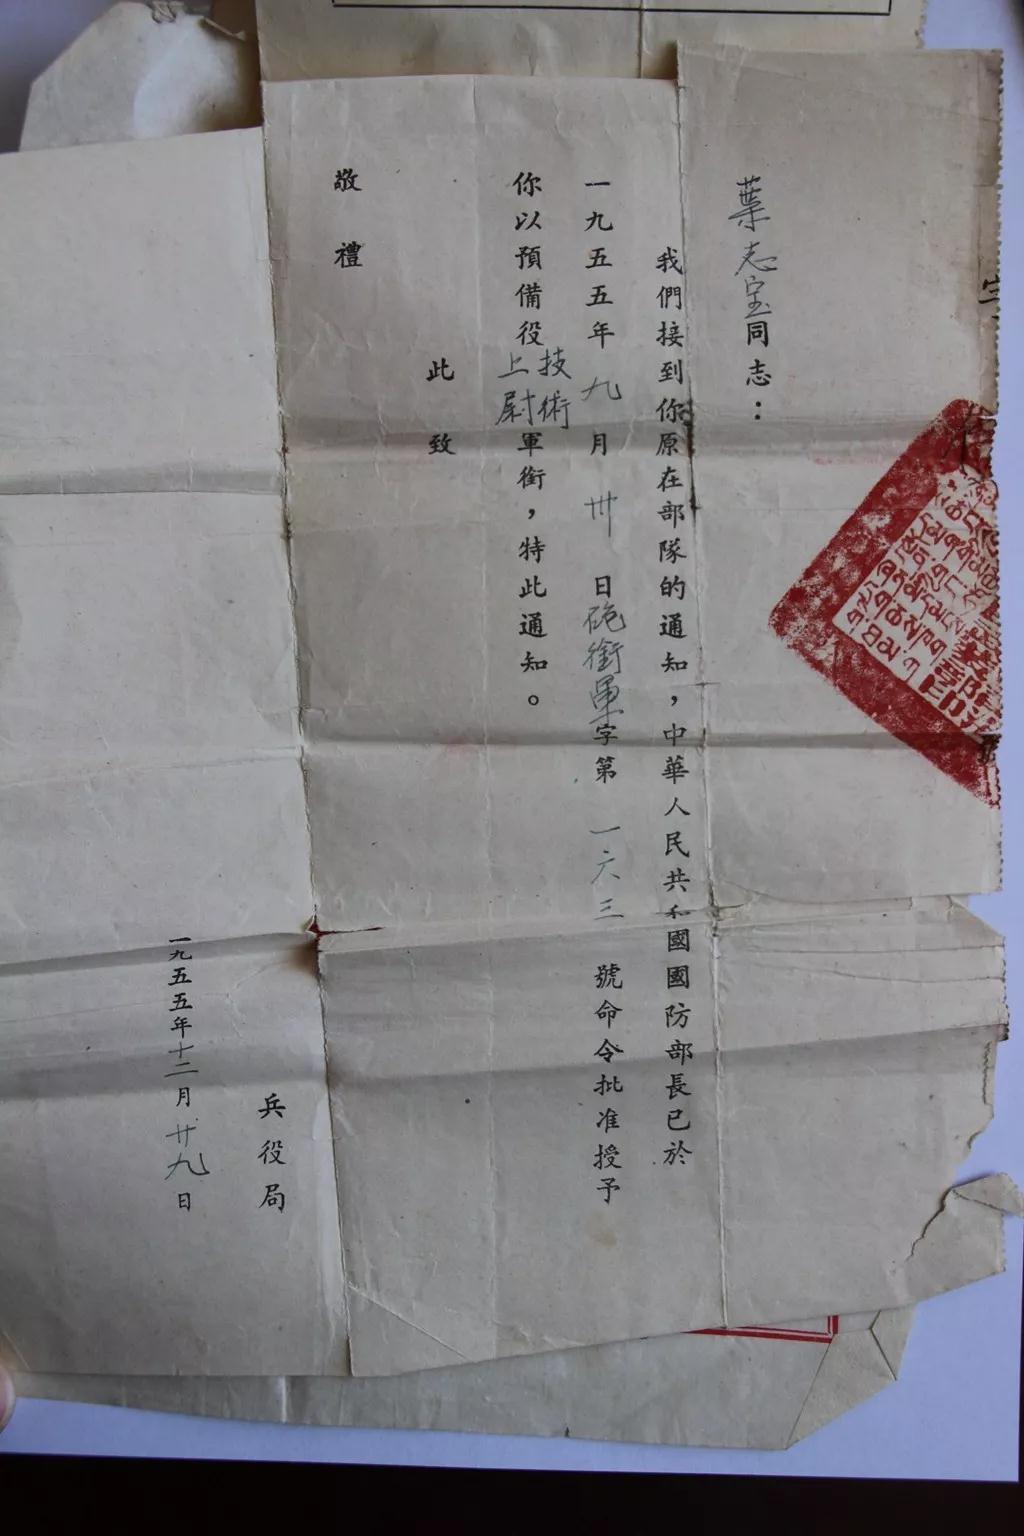 葉志宝同志：
我們接到你原在部隊的通知，中華人民共和國國防部長已於
一九五五年九月卅日砲銜軍字第一六三號命令批准授予
你以預備役技術上尉軍銜，特此通知。
此致
敬禮
兵役局
一九五五年十二月廿九日